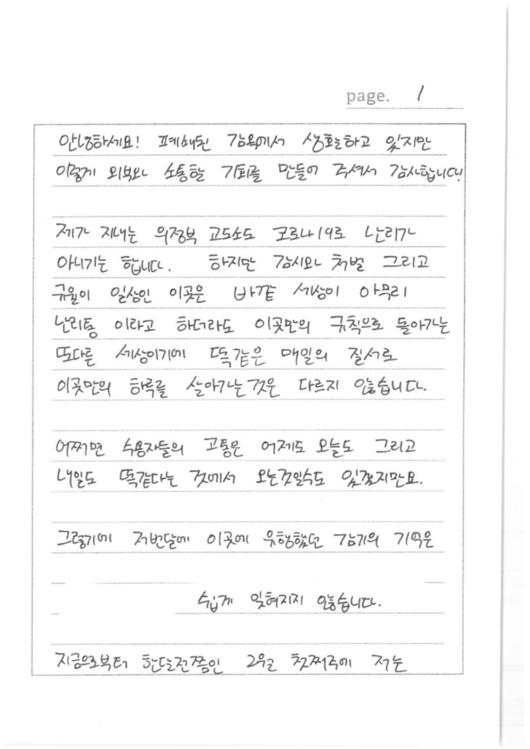 page. 1
안녕하세요! 폐쇄된 감옥에서 생활하고 있지만
이렇게 외부와 소통할 기회를 만들어 주셔서 감사합니다!
제가 지내는 의정부 교도소도 코로나19로 난리가
아니기는 합니다. 하지만 감시와 처벌 그리고
규율이 일상인 이곳은 바깥 세상이 아무리
난리통 이라고 하더라도 이곳만의 규칙으로 돌아가는
또다른 세상이기에 똑같은 매일의 질서로
이곳만의 하루를 살아가는 것은 다르지 않습니다.
어쩌면 수용자들의 고통은 어제도 오늘도 그리고
내일도 똑같다는 것에서 오는것일수도 있겠지만요.
그렇기에 저번달에 이곳에 유행했던 감기의 기억은
쉽게 잊혀지지 않습니다.
지금으로부터 한달전쯤인 2월 첫째주에 저는